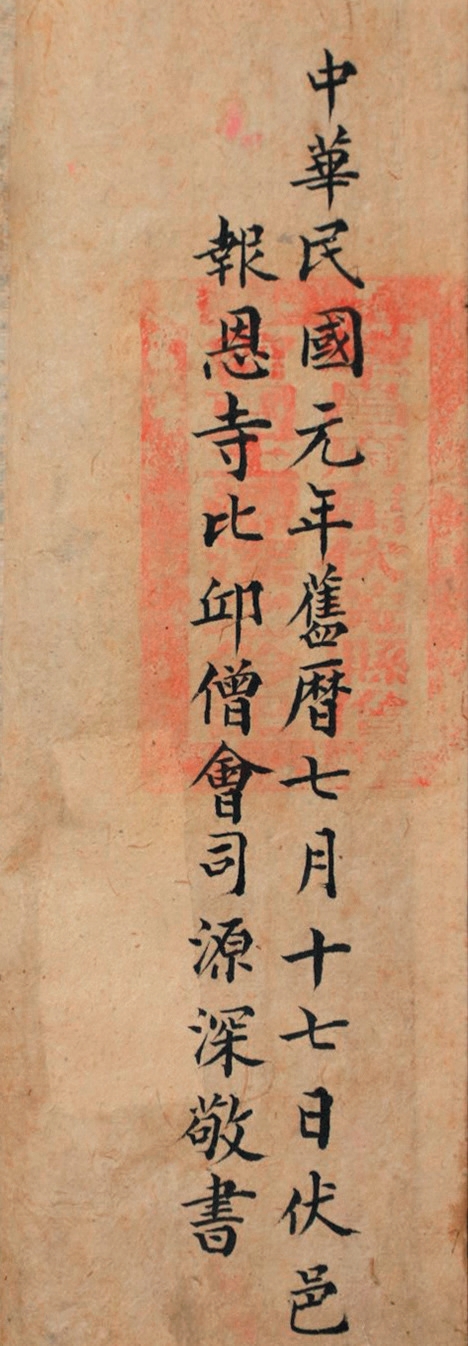 中華民國元年舊曆七月十七日伏邑
報恩寺比邱僧會司源深敬書